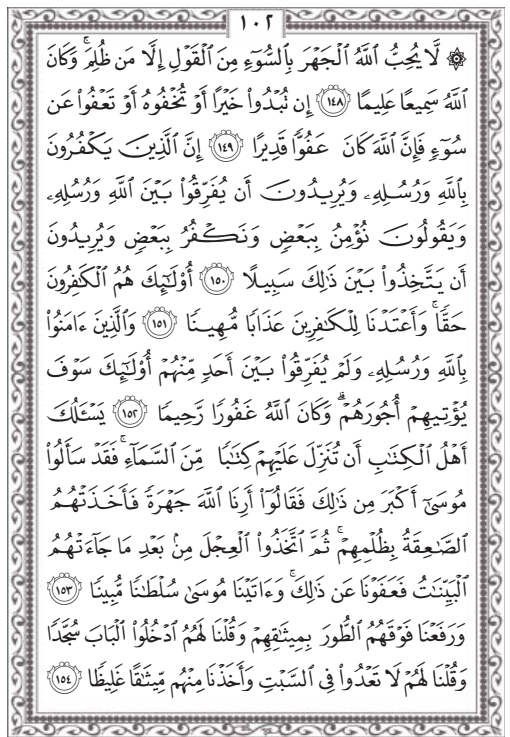 ١٠٢
۞ لَّا يُحِبُّ ٱللَّهُ ٱلْجَهْرَ بِٱلسُّوٓءِ مِنَ ٱلْقَوْلِ إِلَّا مَن ظُلِمَ ۚ وَكَانَ
ٱللَّهُ سَمِيعًا عَلِيمًا ١٤٨ إِن تُبْدُوا۟ خَيْرًا أَوْ تُخْفُوهُ أَوْ تَعْفُوا۟ عَن
سُوٓءٍ فَإِنَّ ٱللَّهَ كَانَ عَفُوًّا قَدِيرًا ١٤٩ إِنَّ ٱلَّذِينَ يَكْفُرُونَ
بِٱللَّهِ وَرُسُلِهِۦ وَيُرِيدُونَ أَن يُفَرِّقُوا۟ بَيْنَ ٱللَّهِ وَرُسُلِهِۦ
وَيَقُولُونَ نُؤْمِنُ بِبَعْضٍ وَنَكْفُرُ بِبَعْضٍ وَيُرِيدُونَ
أَن يَتَّخِذُوا۟ بَيْنَ ذَٰلِكَ سَبِيلًا ١٥٠ أُو۟لَـٰٓئِكَ هُمُ ٱلْكَـٰفِرُونَ
حَقًّا ۚ وَأَعْتَدْنَا لِلْكَـٰفِرِينَ عَذَابًا مُّهِينًا ١٥١ وَٱلَّذِينَ ءَامَنُوا۟
بِٱللَّهِ وَرُسُلِهِۦ وَلَمْ يُفَرِّقُوا۟ بَيْنَ أَحَدٍ مِّنْهُمْ أُو۟لَـٰٓئِكَ سَوْفَ
يُؤْتِيهِمْ أُجُورَهُمْ ۗ وَكَانَ ٱللَّهُ غَفُورًا رَّحِيمًا ١٥٢ يَسْـَٔلُكَ
أَهْلُ ٱلْكِتَـٰبِ أَن تُنَزِّلَ عَلَيْهِمْ كِتَـٰبًا مِّنَ ٱلسَّمَآءِ ۚ فَقَدْ سَأَلُوا۟
مُوسَىٰٓ أَكْبَرَ مِن ذَٰلِكَ فَقَالُوٓا۟ أَرِنَا ٱللَّهَ جَهْرَةً فَأَخَذَتْهُمُ
ٱلصَّـٰعِقَةُ بِظُلْمِهِمْ ۚ ثُمَّ ٱتَّخَذُوا۟ ٱلْعِجْلَ مِنۢ بَعْدِ مَا جَآءَتْهُمُ
ٱلْبَيِّنَـٰتُ فَعَفَوْنَا عَن ذَٰلِكَ ۚ وَءَاتَيْنَا مُوسَىٰ سُلْطَـٰنًا مُّبِينًا ١٥٣
وَرَفَعْنَا فَوْقَهُمُ ٱلطُّورَ بِمِيثَـٰقِهِمْ وَقُلْنَا لَهُمُ ٱدْخُلُوا۟ ٱلْبَابَ سُجَّدًا
وَقُلْنَا لَهُمْ لَا تَعْدُوا۟ فِى ٱلسَّبْتِ وَأَخَذْنَا مِنْهُم مِّيثَـٰقًا غَلِيظًا ١٥٤